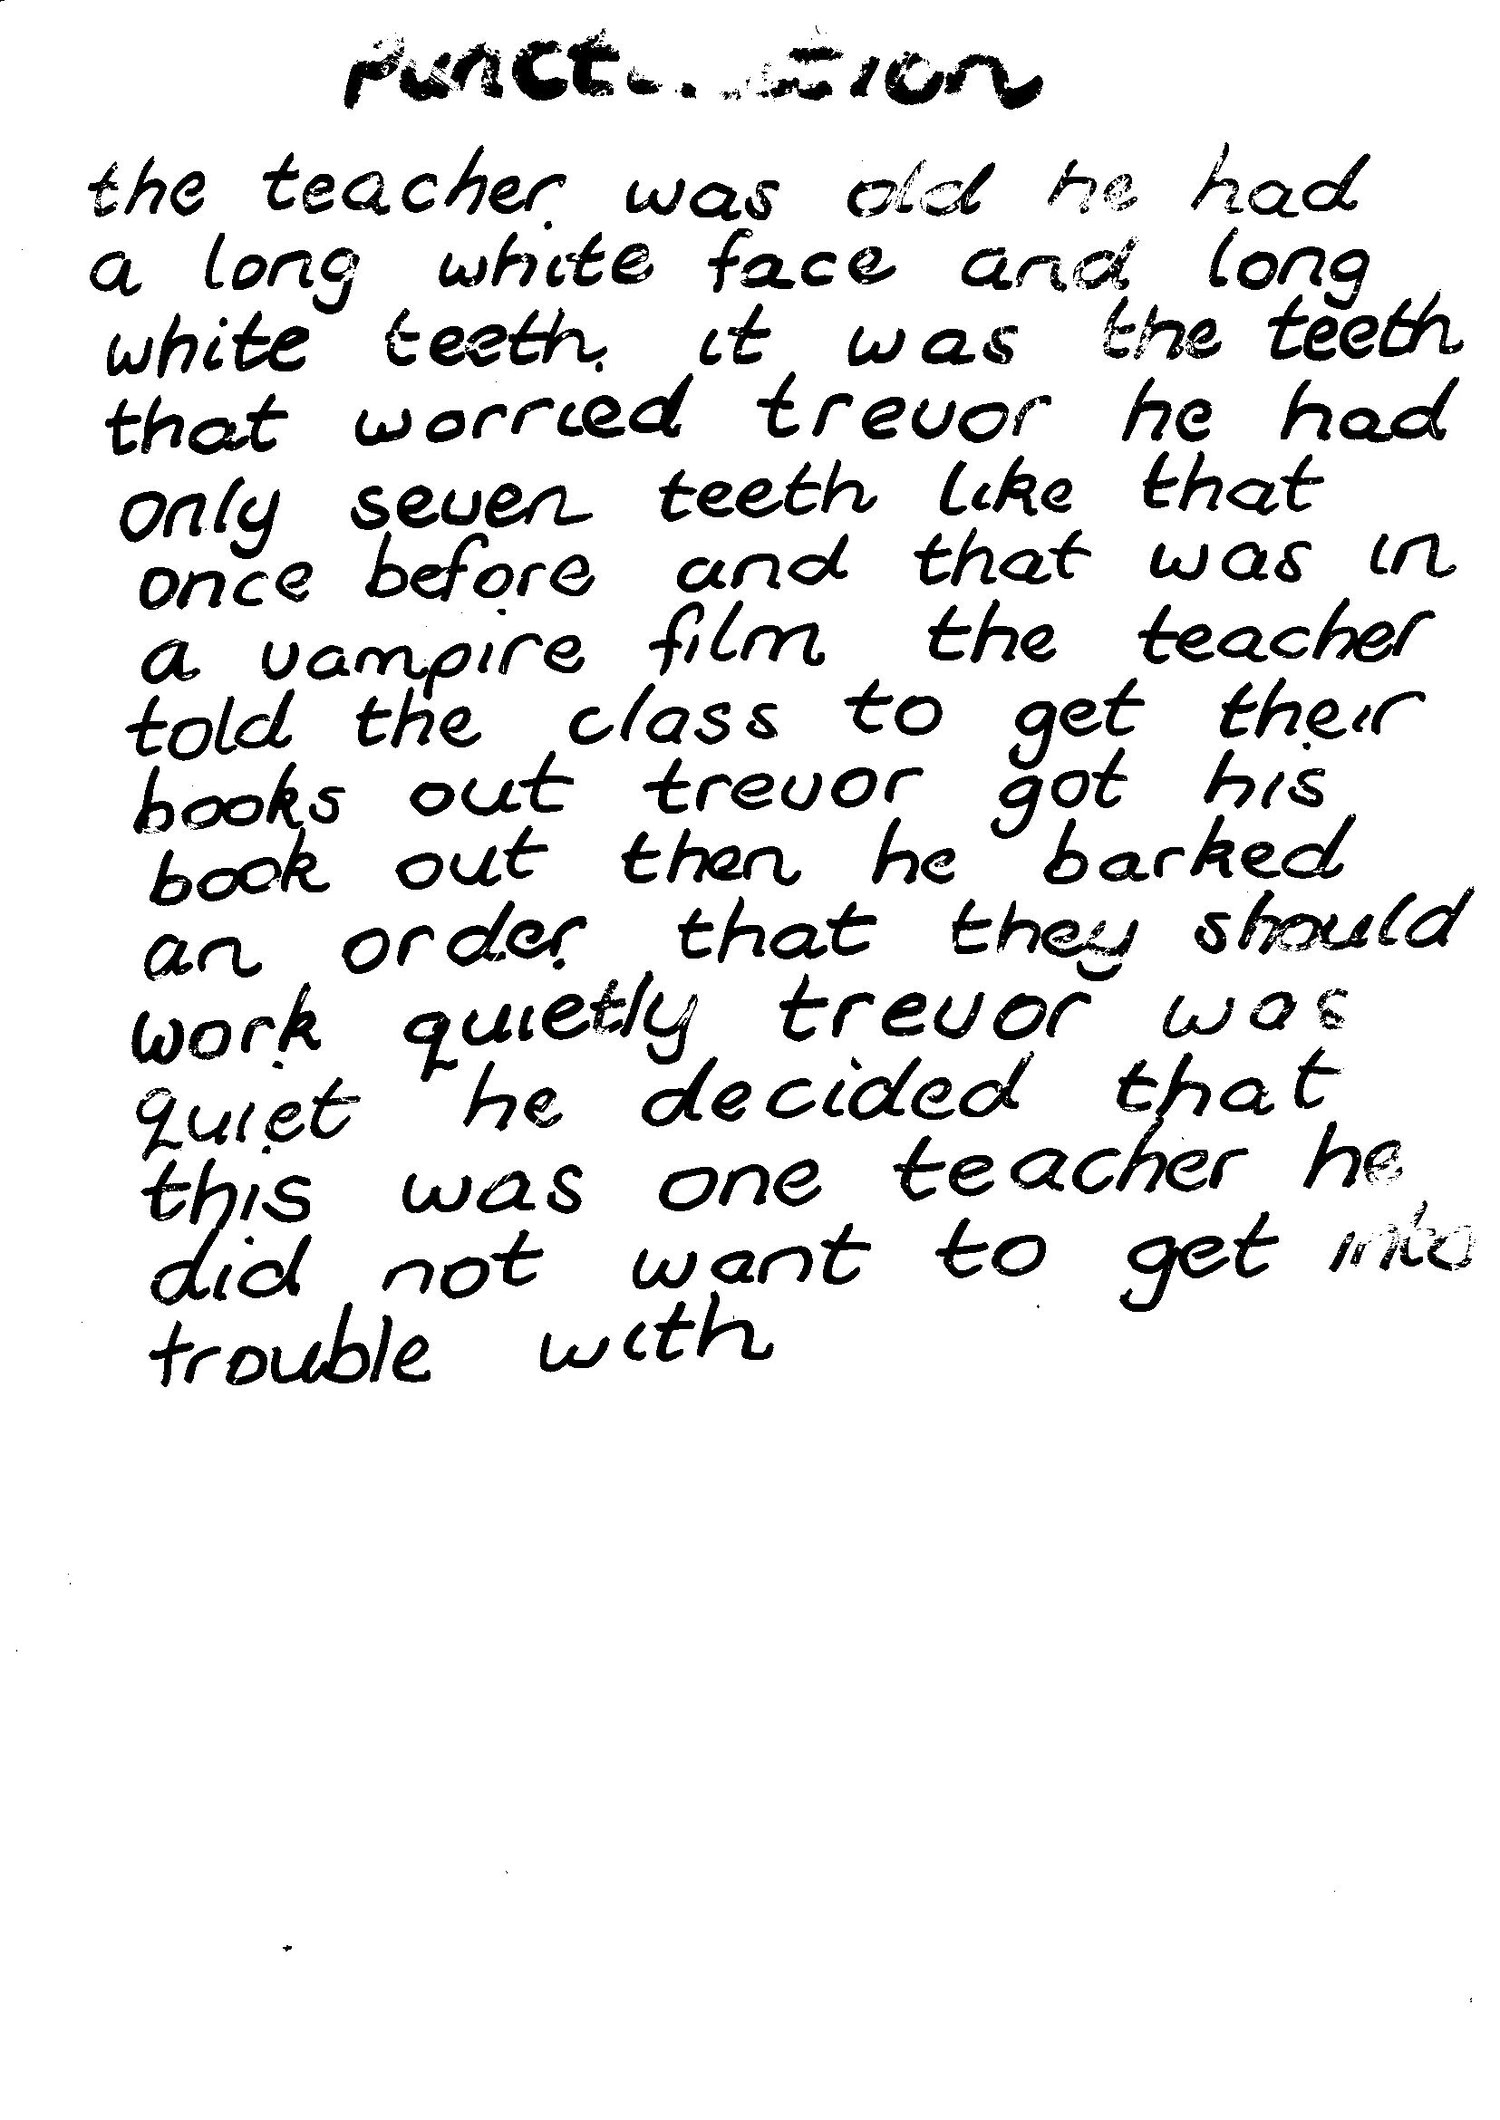 Punctuation
the teacher was old he had
a long white face and long
white teeth. it was the teeth
that worried trevor he had
only seven teeth like that
once before and that was in
a vampire film the teacher
told the class to get their
books out trevor got his
book out then he barked
an order that they should
work quietly trevor was
quiet he decided that
this was one teacher he
did not want to get into
trouble with